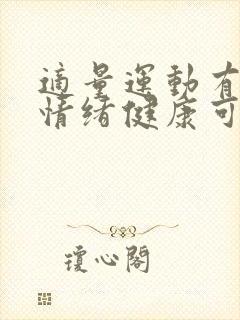 適量運動有
情绪健康可
瓊心閣